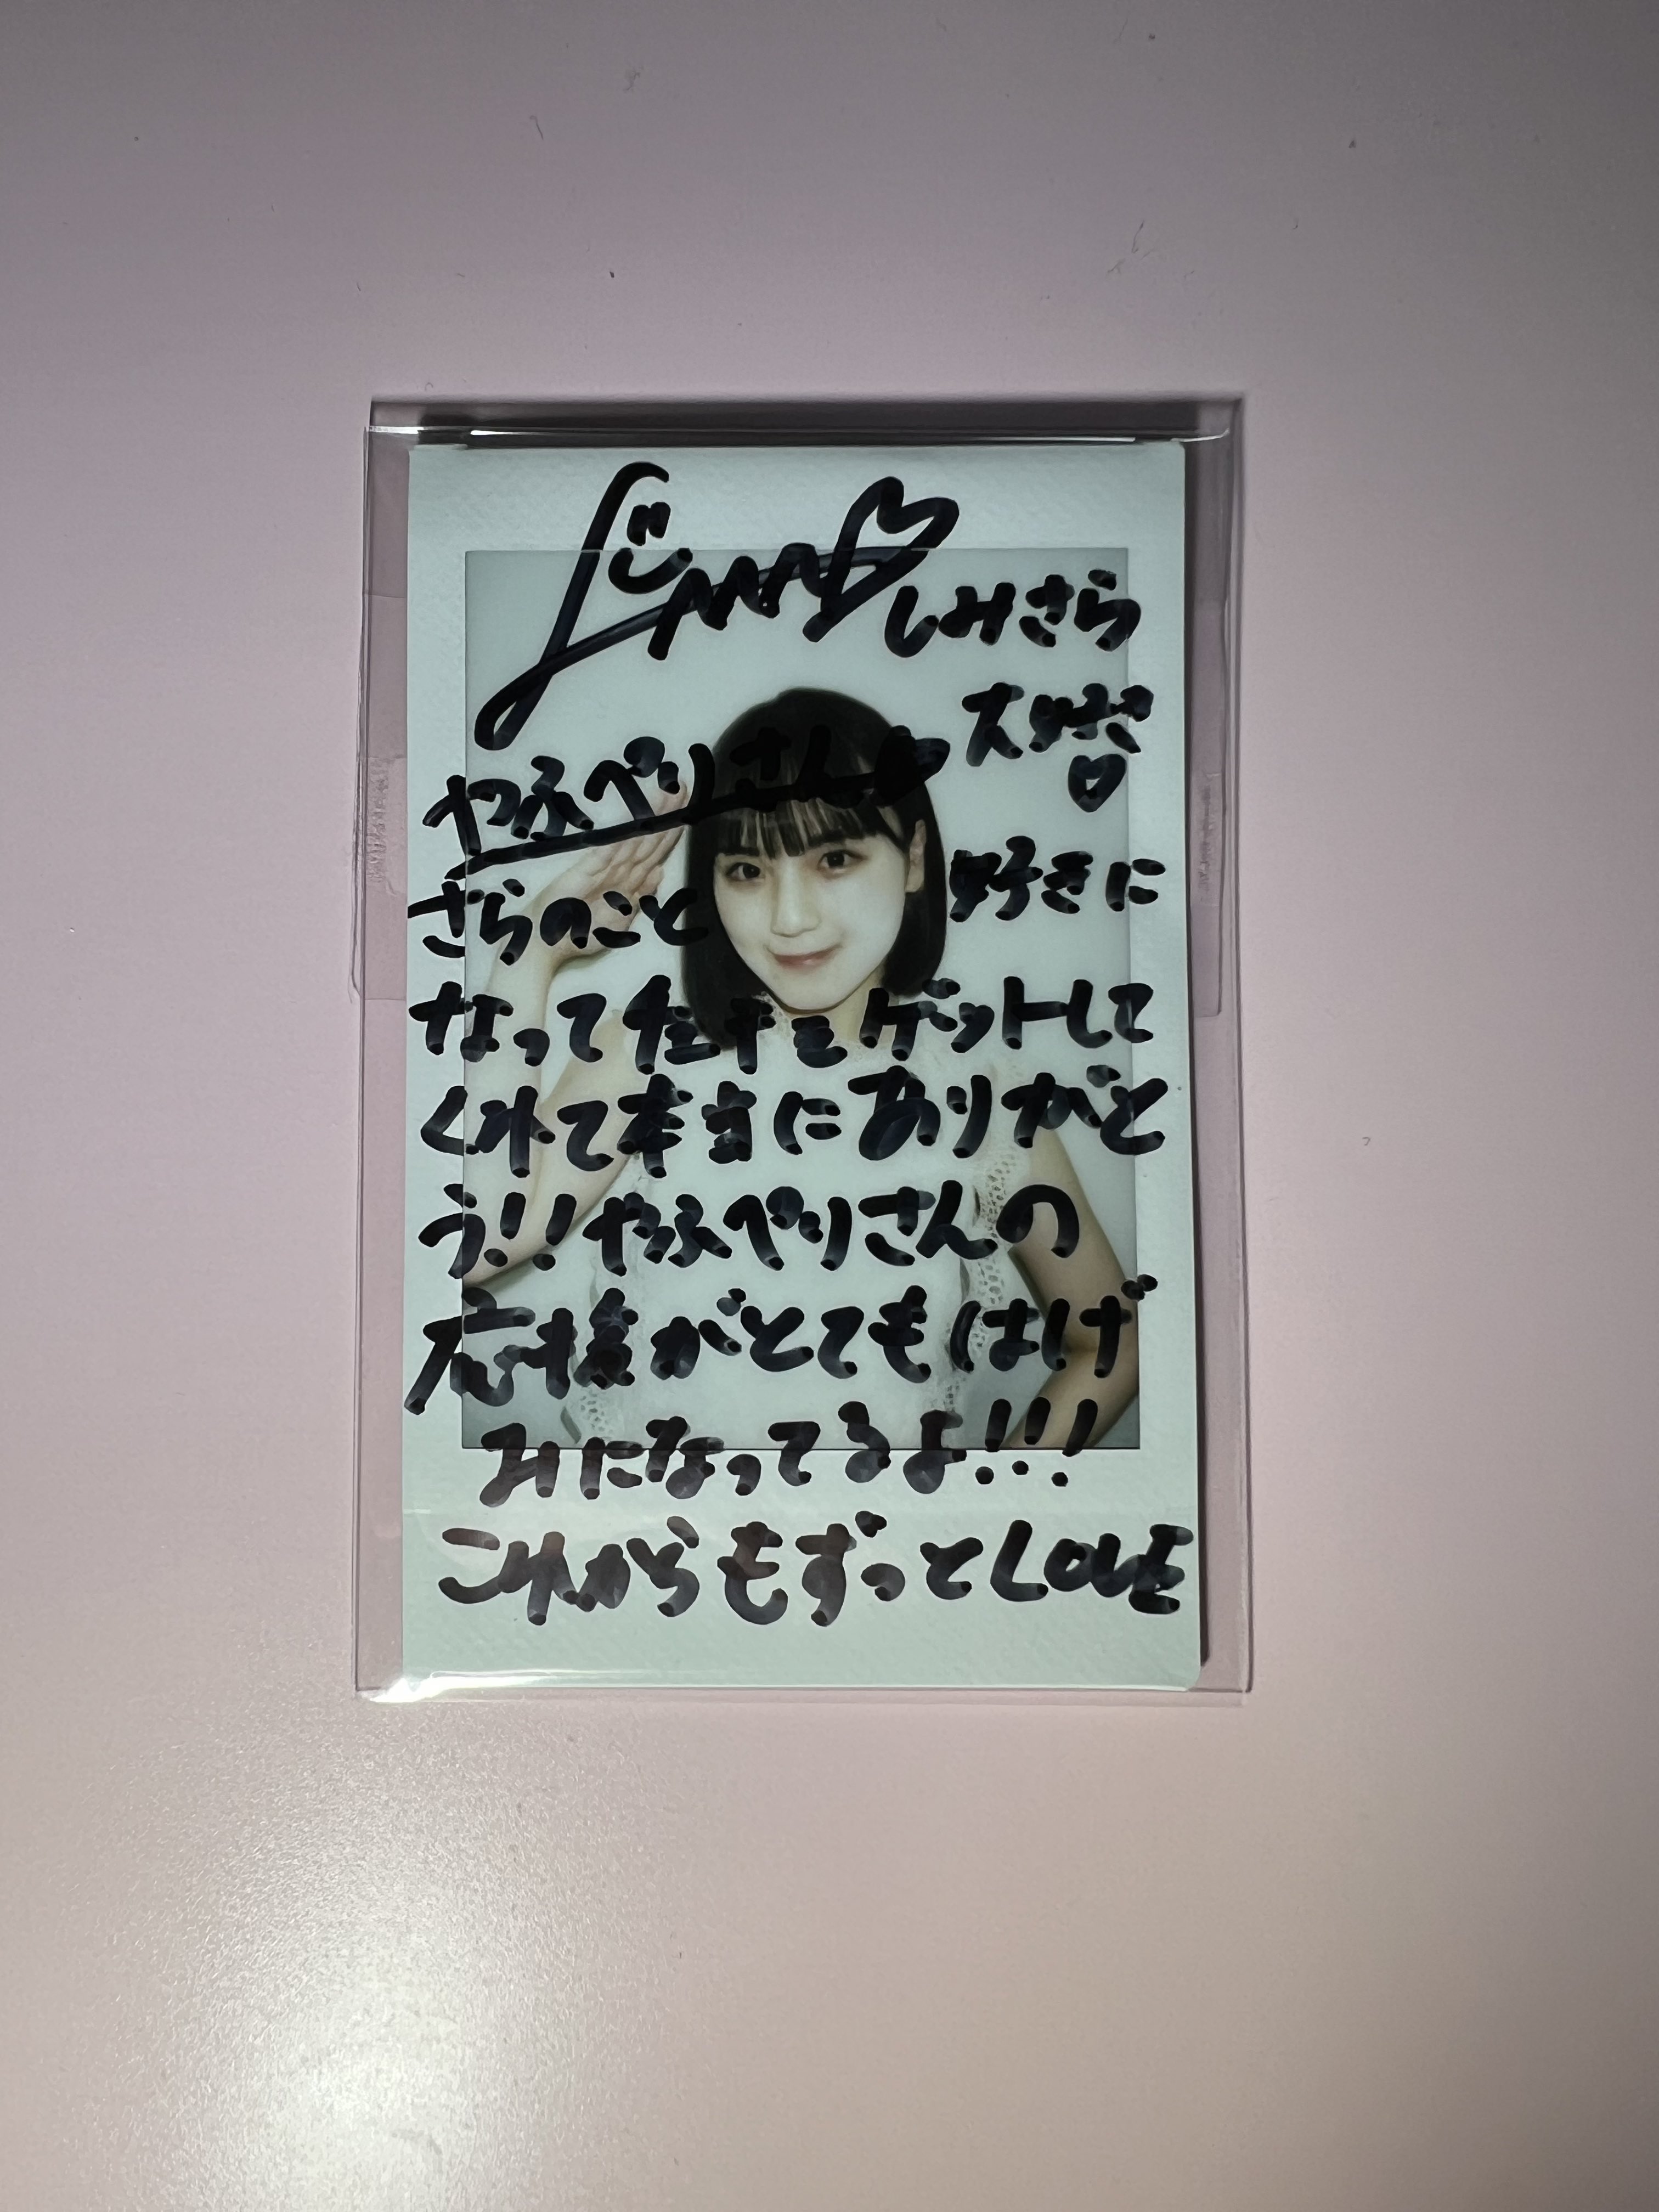 しみさら
大好き♡
やふぺりさん♥
さらのこと 好きに
なってチェキをゲットして
くれて本当にありがと
う!!やふぺりさんの
応援がとてもはげ
みになってるよ!!!
これからもずっとLOVE